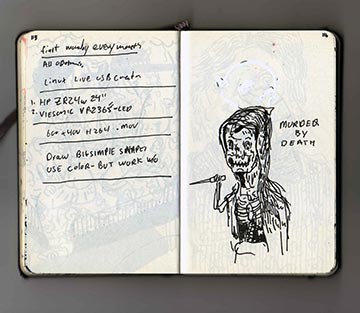 first
All options,
Linux Live USB Creator
1. HP ZR24w 24"
2. Viewsonic VP2365-LED
600 x 400 H264 .mov
Draw Big SIMPLE SHAPES
USE COLOR - BUT WORK w/o
MURDER
BY
DEATH